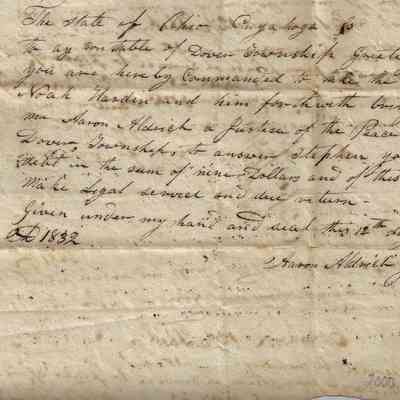 The State of Ohio Cuyahoga Ss
to ay constable of Dover Township Greete
you are hereby Commanded to take the
Noah Hardin and him forthwith brin
me Aaron Aldrich a Justice of the Peace
Dover Township to answer Stephen yo
debt in the sum of nine Dollars and of this
Make Legal service and due return -
Given under my hand and seal this 12th d
AD 1832
Aaron Aldrich